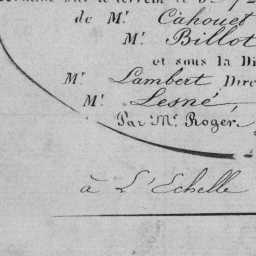 sur le terrein le
de Mr. Cahouet
Mr. Billot
et sous la Di
Mr. Lambert Dire
Mr. Lesné,
Par Mr. Roger.
à L'Echelle